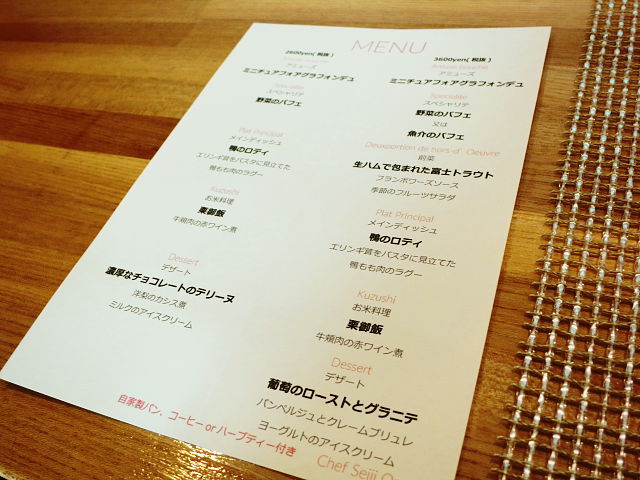 MENU
2600yen( 税抜 )
アミューズ
ミニチュアフォアグラフォンデュ
スペシャリテ
野菜のパフェ
Plat Principal
メインディッシュ
鴨のロティ
エリンギ茸をパスタに見立てた
鴨もも肉のラグー
Kuzushi
お米料理
栗御飯
牛頬肉の赤ワイン煮
Dessert
デザート
濃厚なチョコレートのテリーヌ
洋梨のカシス煮
ミルクのアイスクリーム
3600yen( 税抜 )
アミューズ
ミニチュアフォアグラフォンデュ
Specialite
スペシャリテ
野菜のパフェ
又は
魚介のパフェ
Deuxportion de hors-d' Oeuvre
前菜
生ハムで包まれた富士トラウト
フランボワーズソース
季節のフルーツサラダ
Plat Principal
メインディッシュ
鴨のロティ
エリンギ茸をパスタに見立てた
鴨もも肉のラグー
Kuzushi
お米料理
栗御飯
牛頬肉の赤ワイン煮
Dessert
デザート
葡萄のローストとグラニテ
パンペルジュとクレームブリュレ
ヨーグルトのアイスクリーム
自家製パン、コーヒー or ハーブティー付き
Chef Seiji